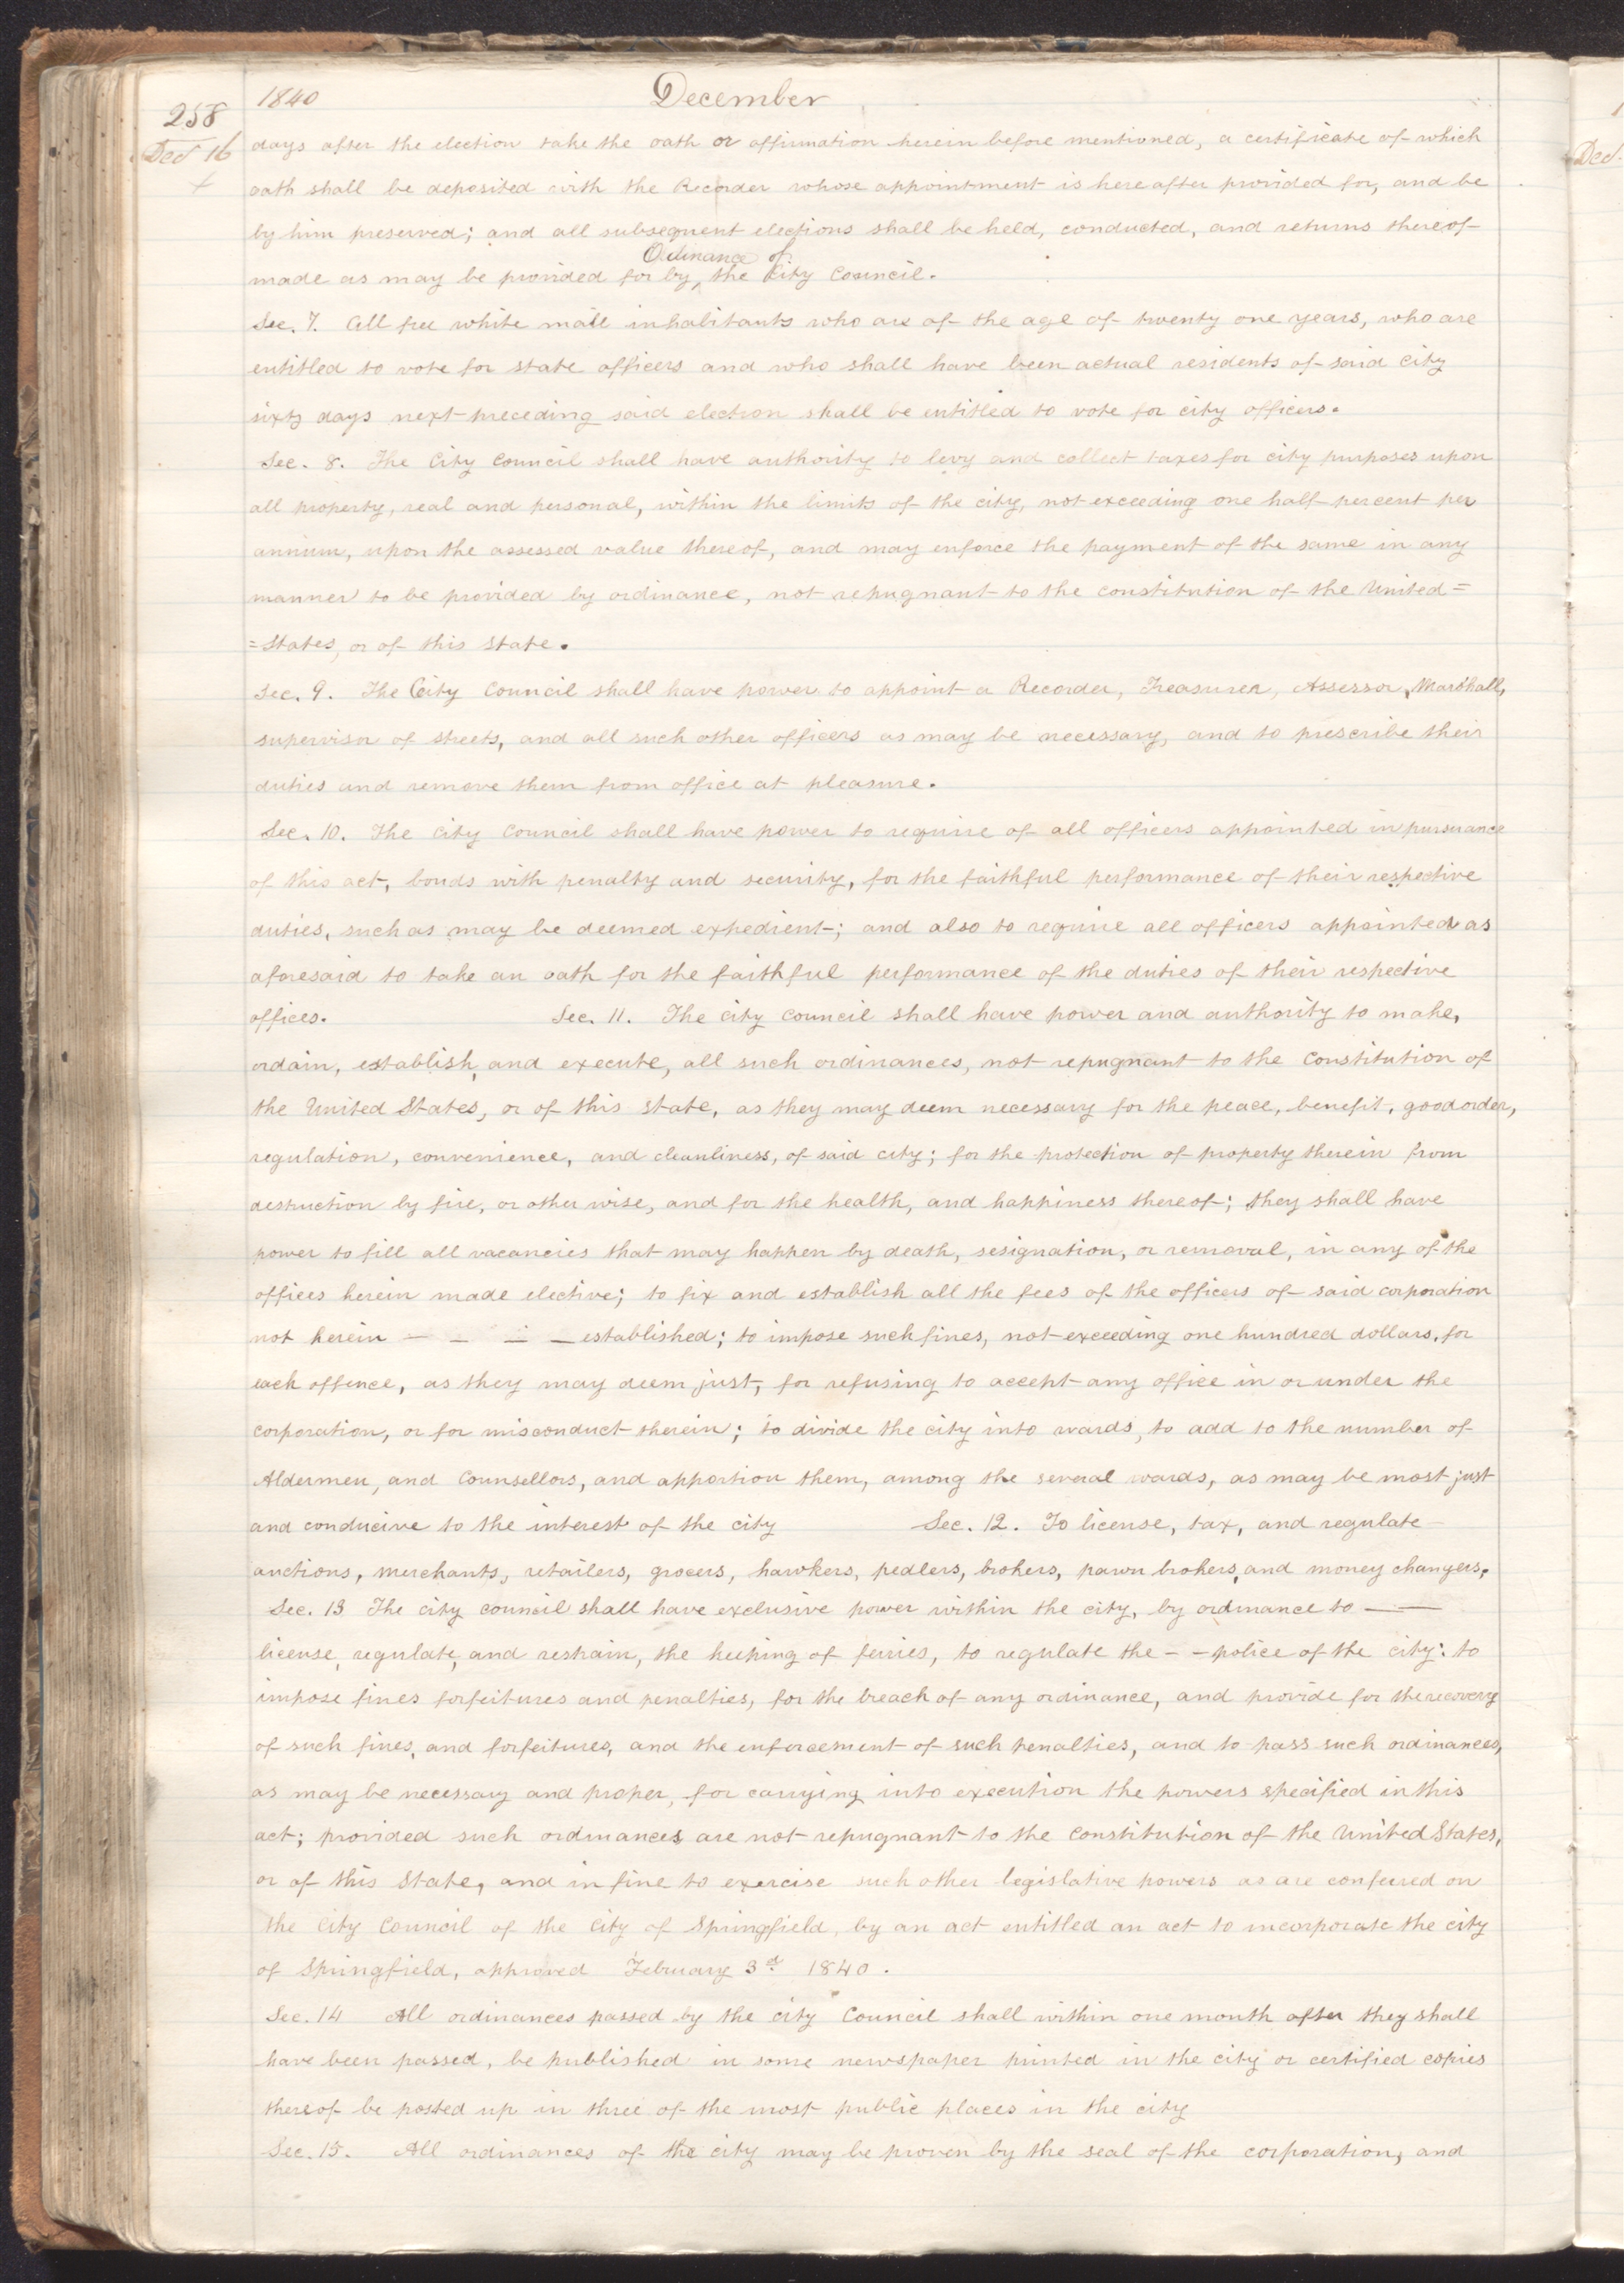 258
1840
December
Dec 16
days after the election take the oath or affirmation herein before mentioned, a certificate of which
oath shall be deposited with the Recorder whose appointment is hereafter provided for, and be
by him preserved; and all subsequent elections shall be held, conducted, and returns thereof
Ordinance of
made as may be provided for by, the City Council.
Sec. 7. All free white male inhabitants who are of the age of twenty one years, who are
entitled to vote for state officers and who shall have been actual residents of said city
sixty days next preceding said election shall be entitled to vote for city officers.
Sec. 8. The City Council shall have authority to levy and collect taxes for city purposes upon
all property, real and personal, within the limits of the city, not exceeding one half percent per
annum, upon the assessed value thereof, and may enforce the payment of the same in any
manner to be provided by ordinance, not repugnant to the constitution of the United=
=States, or of this State.
Sec. 9. The City Council shall have power to appoint a Recorder, Treasurer, Assessor, Marshall,
supervisor of streets, and all such other officers as may be necessary, and to prescribe their
duties and remove them from office at pleasure.
Sec. 10. The City Council shall have power to require of all officers appointed in pursuance
of this act, bonds with penalty and security, for the faithful performance of their respective
duties, such as may be deemed expedient; and also to require all officers appointed as
aforesaid to take an oath for the faithful performance of the duties of their respective
offices. Sec. 11. The city council shall have power and authority to make,
ordain, establish, and execute, all such ordinances, not repugnant to the Constitution of
the United States, or of this State, as they may deem necessary for the peace, benefit, good order,
regulation, convenience, and cleanliness, of said city; for the protection of property therein from
destruction by fire, or other wise, and for the health, and happiness thereof; they shall have
power to fill all vacancies that may happen by death, resignation, or removal, in any of the
offices herein made elective; to fix and establish all the fees of the officers of said corporation
not herein — — — — established; to impose such fines, not exceeding one hundred dollars, for
each offence, as they may deem just, for refusing to accept any office in or under the
corporation, or for misconduct therein; to divide the city into wards, to add to the number of
Aldermen, and Counsellors, and apportion them, among the several wards, as may be most just
and conducive to the interest of the city Sec. 12. To license, tax, and regulate
auctions, merchants, retailers, grocers, hawkers, pedlers, brokers, pawn brokers, and money changers.
Sec. 13 The city council shall have exclusive power within the city, by ordinance to — —
license, regulate, and restrain, the keeping of ferries, to regulate the - - police of the city: to
impose fines forfeitures and penalties, for the breach of any ordinance, and provide for the recovery
of such fines, and forfeitures, and the enforcement of such penalties, and to pass such ordinances,
as may be necessary and proper, for carrying into execution the powers specified in this
act; provided such ordinances are not repugnant to the Constitution of the United States,
or of this State, and in fine to exercise such other legislative powers as are conferred on
the City Council of the City of Springfield, by an act entitled an act to incorporate the city
of Springfield, approved February 3d 1840.
Sec. 14 All ordinances passed by the city Council shall within one month after they shall
have been passed, be published in some newspaper printed in the city or certified copies
thereof be posted up in three of the most public places in the city
Sec. 15. All ordinances of the city may be proven by the seal of the corporation, and
Dec.